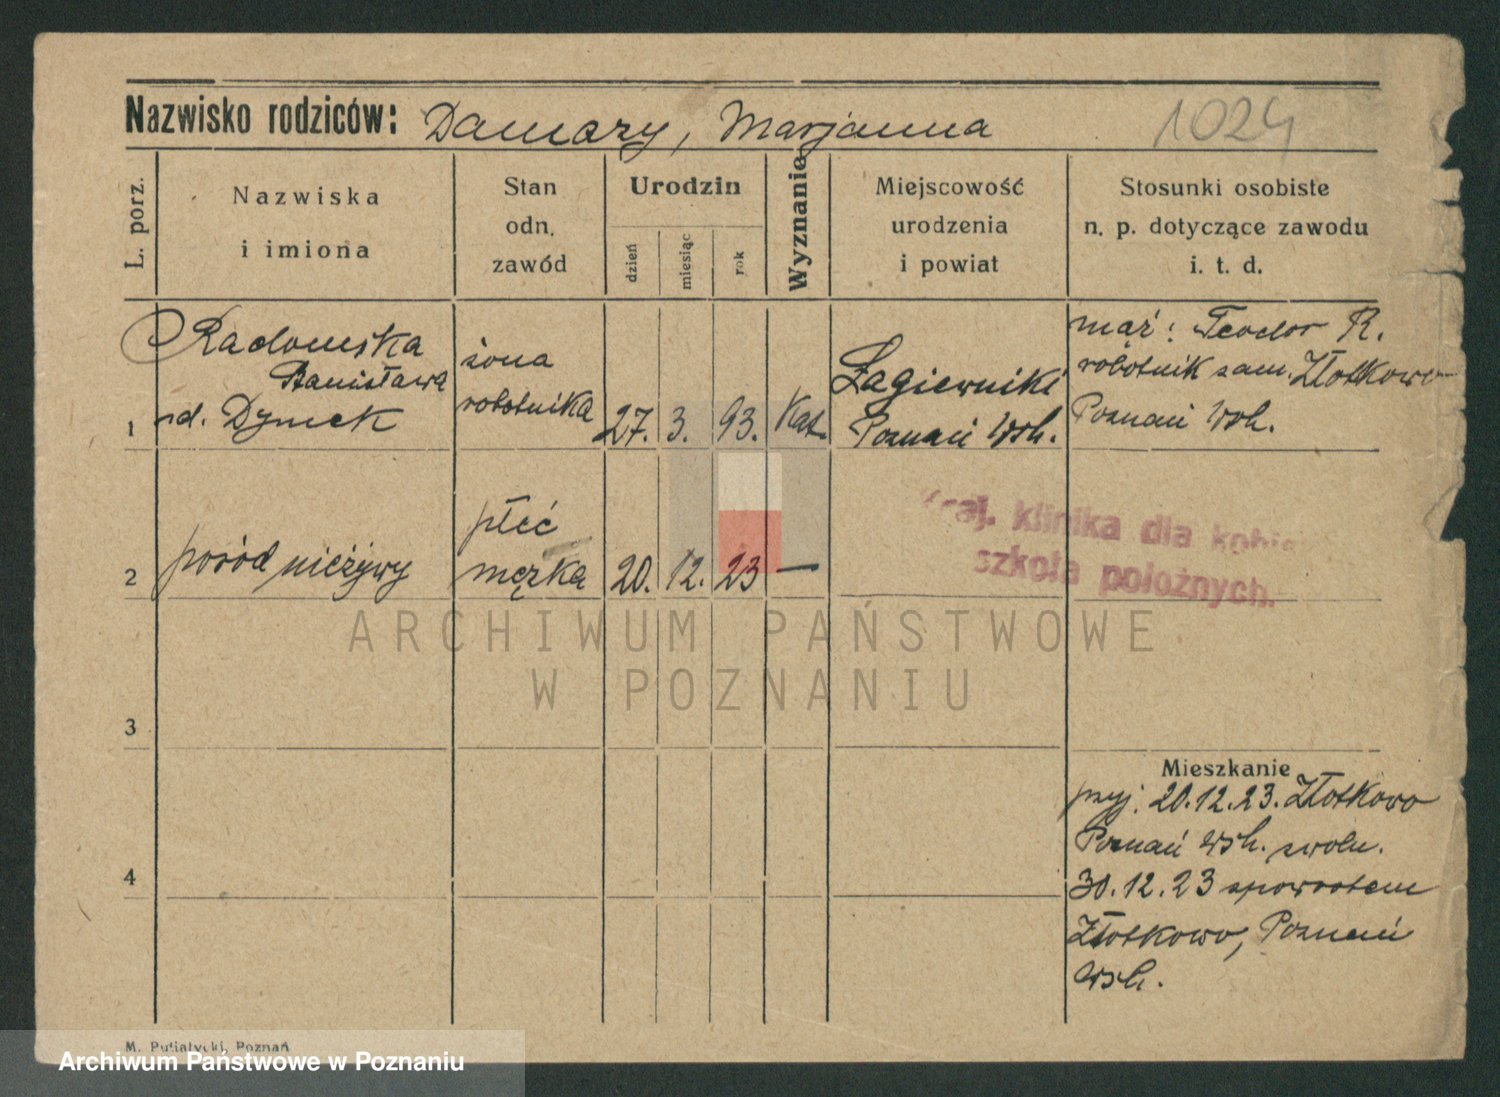 Nazwisko rodziców: Damazy, Marjanna 1024
L. porz.
Nazwiska
i imiona
Stan
odn.
zawód
Urodzin
dzień
miesiąc
rok
Wyznanie
Miejscowość
urodzenia
i powiat
Stosunki osobiste
n. p. dotyczące zawodu
i. t. d.
1
Radomska
Stanisława
rd. Dymek
żona
robotnika
27. 3. 93. Kat.
Łagiewniki
Poznań Wsh.
mąż: Teodor R.
robotnik zam. Złotkowo
Poznań Wsh.
2
poród nieżywy
płeć
męzka
20. 12. 23 —
Kraj. klinika dla kobiet
szkoła położnych.
ARCHIWUM PAŃSTWOWE
W POZNANIU
3
4
Mieszkanie
przyj. 20.12.23. Złotkowo
Poznań Wsh. zwoln.
30.12.23 spowrotem
Złotkowo, Poznań
Wsh.
M. Putiatycki, Poznań
Archiwum Państwowe w Poznaniu